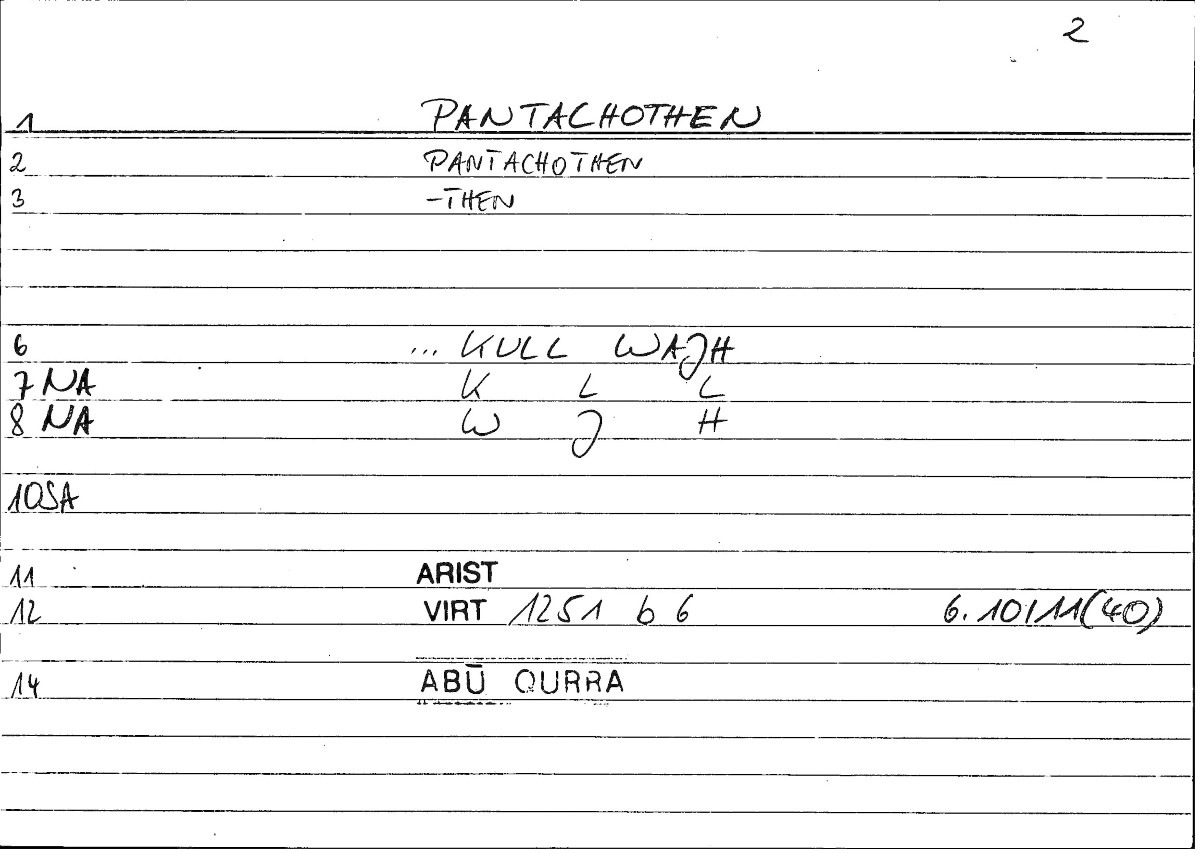 2
1 PANTACHOTHEN
2 PANTACHOTHEN
3 -THEN
6 ... KULL WAJH
7 NA K L L
8 NA W J H
10SA
11 ARIST
12 VIRT 1251 b 6 6.10/11(40)
14 ABŪ QURRA